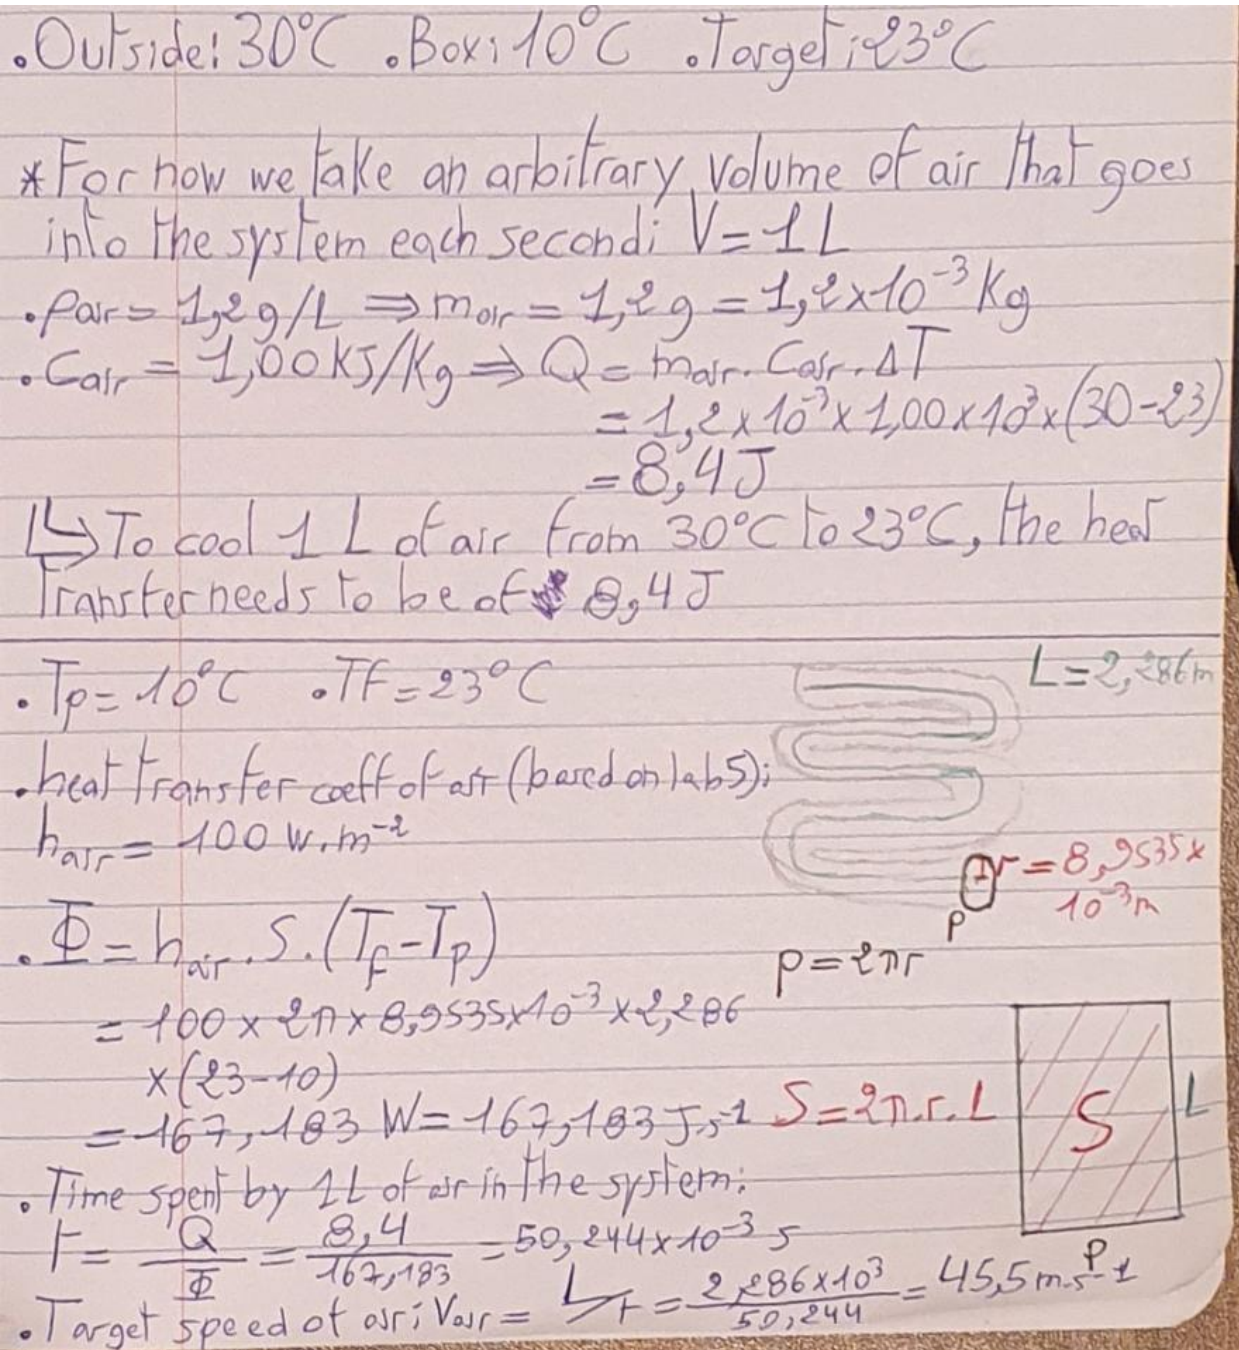 .Outside: 30°C .Box: 10°C .Target: 23°C
*For now we take an arbitrary volume of air that goes
into the system each second: V=1L
.ρair= 1,2g/L ⇒ mair= 1,2g = 1,2x10⁻³Kg
.Cair= 1,00KJ/Kg ⇒ Q= mair. Cair. ΔT
= 1,2x10⁻³x1,00x10³x(30-23)
= 8,4J
↳ To cool 1L of air from 30°C to 23°C, the heat
transfer needs to be of 8,4J
.Tp=10°C .Tf=23°C
L=2,286m
.heat transfer coeff of air (based on lab5):
hair= 100 W.m⁻²
r=8,9535x
10⁻³m
P
.Φ= hair. S. (Tf-Tp)
P=2πr
= 100x2πx8,9535x10⁻³x2,286
x(23-10)
= 167,183 W= 167,183J.s⁻¹
S=2π.r.L
S
L
P
.Time spent by 1L of air in the system:
t= Q/Φ = 8,4/167,183 = 50,244x10⁻³ s
.Target speed of air: Vair= L/t = 2,286x10³/50,244 = 45,5m.s⁻¹